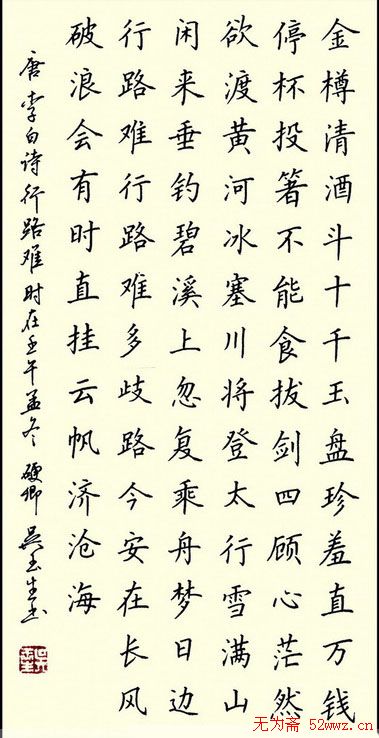 金樽清酒斗十千玉盘珍羞直万钱
停杯投箸不能食拔剑四顾心茫然
欲渡黄河冰塞川将登太行雪满山
闲来垂钓碧溪上忽复乘舟梦日边
行路难行路难多歧路今安在长风
破浪会有时直挂云帆济沧海
唐李白诗行路难时在壬午孟冬硬卿吴玉生书
无为斋 52wwz.cn